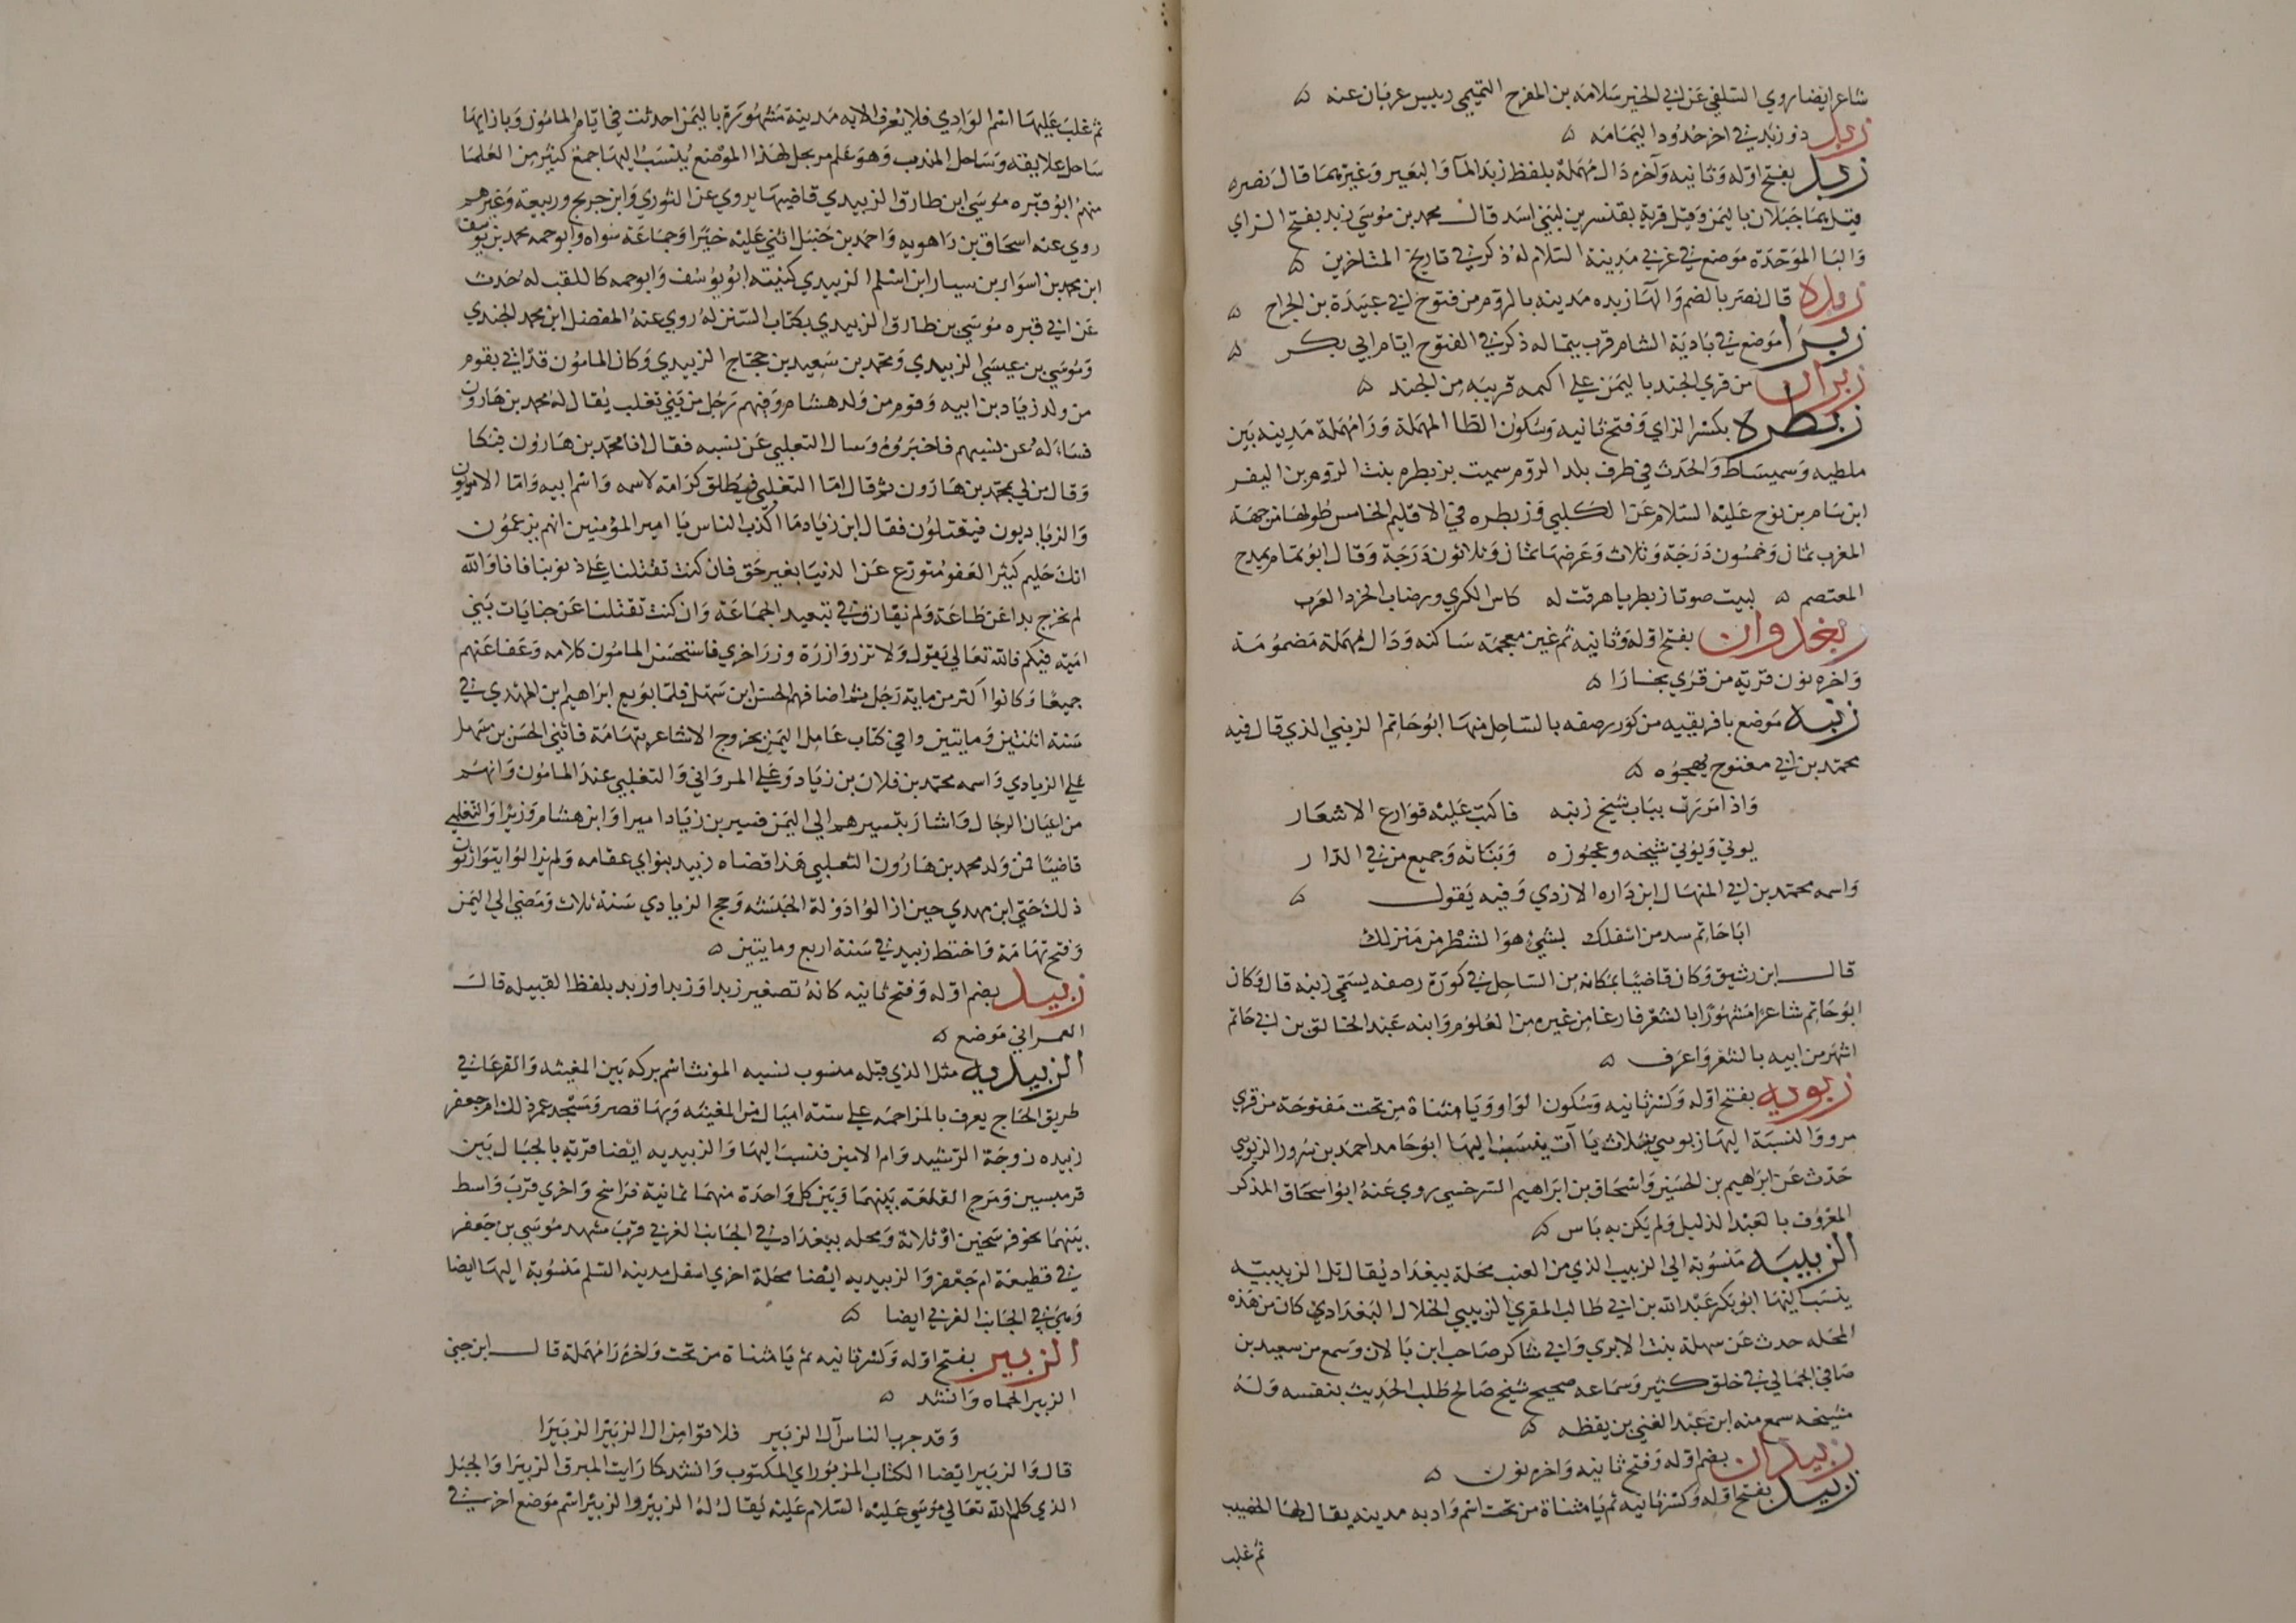 شاعر ايضا روي السلفي عن ابي الخير سلامه بن المفرح التميمي رييس عربان عنه ۵
زبد ذو زبد في اخر حدود اليمامه ۵
زبد بفتح اوله وثانيه وآخره دال مهملة بلفظ زبد الماء والبعير وغيرهما قال نصره
قيل هما جبلان باليمن وقيل قرية بقنسرين لبني اسد قال محمد بن موسي زبد بفتح الزاي
والبا الموحدة موضع في غربي مدينة السلام له ذكر في تاريخ المتاخرين ۵
زبده قال نصر بالضم والهآ زبده مدينه بالروم من فتوح ابي عبيدة بن الجراح ۵
زبرا موضع في بادية الشام قرب تيما له ذكر في الفتوح ايام ابي بكر ۵
زبران من قري الجند باليمن علي اكمه قريبه من الجند ۵
زبطره بكسر الزاي وفتح ثانيه وسكون الطا المهملة ورا مهملة مدينه بين
ملطيه وسميساط والحدث في طرف بلد الروم سميت بزبطره بنت الروم بن اليفر
ابن سام بن نوح عليه السلام عن الكلبي وزبطره في الاقليم الخامس طولها من جهة
المغرب ثمان وخمسون درجة وثلاث وعرضها ثمان وثلاثون درجة وقال ابو تمام يمدح
المعتصم ۵ لبيت صوتا زبطريا هرقت له كاس الكري ورضاب الخرد العرب
زبغدوان بفتح اوله وثانيه ثم غين معجمة ساكنه ودال مهملة مضمومة
واخره نون قرية من قري بخارا ۵
زبنه موضع بافريقيه من كور رصفه بالساحل منها ابو حاتم الزبني الذي قال فيه
محمد بن ابي مفتوح يهجوه ۵
واذا مررت بباب شيخ زبنه فاكتب عليه قوارع الاشعار
يوتي ويوتي شيخه وعجوزه وبناته وجميع من في الدار
واسمه محمد بن ابي المنهال ابن داره الازدي وفيه يقول ۵
ابا حاتم سد من اسفلك بشيء هو الشطر من منزلك
قال ابن رشيق وكان قاضيا بمكانه من الساحل في كورة رصفه يسمي زبنه قال وكان
ابو حاتم شاعرا مشهورا بالشعر فارغا من غيره من العلوم وابنه عبد الخالق بن ابي حاتم
اشهر من ابيه بالشعر واعرف ۵
زبويه بفتح اوله وكسر ثانيه وسكون الواو ويا مثناة من تحت مفتوحة من قري
مرو والنسبة اليها زبوي بثلاث يآت ينسب اليها ابو حامد احمد بن سرور الزبوي
حدث عن ابراهيم بن الحسين واسحاق بن ابراهيم السرخسي روي عنه ابو اسحاق المذكر
المعروف بالعبد الذليل ولم يكن به باس ۵
الزبيبيه منسوبة الي الزبيب الذي من العنب محلة ببغداد يقال تل الزبيبيه
ينسب اليها ابو بكر عبد الله بن ابي طالب المقري الزبيبي الخلال البغدادي كان من هذه
المحله حدث عن سهلة بنت الابري وابي شاكر صاحب ابن بالان وسمع من سعيد بن
صافي الجمالي في خلق كثير وسماعه صحيح شيخ صالح طلب الحديث بنفسه وله
مشيخه سمع منه ابن عبد الغني بن يقظه ۵
زبيدان بضم اوله وفتح ثانيه واخره نون ۵
زبيد بفتح اوله وكسر ثانيه ثم يا مثناة من تحت اسم واد به مدينه يقال لها الخصيب
ثم غلب
ثم غلب عليها اسم الوادي فلا تعرف الا به مدينة مشهورة باليمن احدثت في ايام المامون وبازايها
ساحل علافقه وساحل المندب وهو علم مرتجل لهذا الموضع ينسب اليها جمع كثير من العلما
منهم ابو قره موسي ابن طارق الزبيدي قاضيها يروي عن الثوري وابن جريج وربيعة وغيرهم
روي عنه اسحاق بن راهويه واحمد بن حنبل اثني عليه خيرا وجماعة سواه وابو حمه محمد بن يوسف
ابن محمد بن اسوار بن سيار ابن اسلم الزبيدي كنيته ابو يوسف وابو حمه كاللقب له حدث
عن ابي قره موسي بن طارق الزبيدي بكتاب السنن له روي عنه المفضل ابن محمد الجندي
وموسي بن عيسي الزبيدي ومحمد بن سعيد بن حجاج الزبيدي وكان المامون قد اتي بقوم
من ولد زياد بن ابيه وقوم من ولد هشام وفيهم رجل من بني تغلب يقال له محمد بن هارون
فساله عن نسبهم فاخبروه وسال التغلبي عن نسبه فقال انا محمد بن هارون فبكا
وقال من لي بمحمد بن هارون ثم قال اما التغلبي فيطلق كرامة لاسمه واسم ابيه واما الامويون
والزياديون فيقتلون فقال ابن زياد ما اكذب الناس يا امير المؤمنين انهم يزعمون
انك حليم كثير العفو متورع عن الدنيا بغير حق فان كنت تقتلنا علي ذنوبنا فانا والله
لم نخرج بدا عن طاعة ولم نفارق في تبعيد الجماعة وان كنت تقتلنا عن جنايات بني
امية فيكم فالله تعالي يقول ولا تزر وازرة وزر اخري فاستحسن المامون كلامه وعفا عنهم
جميعا وكانوا اكثر من ماية رجل ثم اضافهم الحسن ابن سهل فلما بويع ابراهيم ابن المهدي في
سنة اثنتين ومايتين وافي كتاب عامل اليمن بخروج الاشاعر بتهامة فاثني الحسن بن سهل
علي الزيادي واسمه محمد بن فلان بن زياد وعلي المرواني والتغلبي عند المامون وانهم
من اعيان الرجال واشار بتسييرهم الي اليمن فسير بن زياد اميرا وابن هشام وزيرا والتغلبي
قاضيا فمن ولد محمد بن هارون التغلبي هذا قضاه زبيد بنو ابي عقامه ولم يزالوا يتوارثون
ذلك حتي ابن مهدي حين ازالوا دولة الحبشه وحج الزيادي سنة ثلاث ومضي الي اليمن
وفتح تهامة واختط زبيد في سنة اربع ومايتين ۵
زبيد بضم اوله وفتح ثانيه كانه تصغير زبد او زبد او زبد بلفظ القبيله قال
العمراني موضع ۵
الزبيديه مثل الذي قبله منسوب نسبه المونث اسم بركه بين المغيثه والقرعا في
طريق الحاج يعرف بالمزاحمه علي ستة اميال من المغيثه وبها قصر ومسجد عمرت ذلك ام جعفر
زبيده زوجة الرشيد وام الامين فنسبت اليها والزبيديه ايضا قرية بالجبال بين
قرميسين ومرج القلعة بينهما وبين كل واحدة منهما ثمانية فراسخ واخري قرب واسط
بينهما نحو فرسخين او ثلاثة ومحله ببغداد في الجانب الغربي قرب مشهد موسي بن جعفر
في قطيعة ام جعفر والزبيديه ايضا محلة اخري اسفل مدينه السلم منسوبة اليها ايضا
وهي في الجانب الغربي ايضا ۵
الزبير بفتح اوله وكسر ثانيه ثم يا مثناة من تحت واخره را مهملة قال ابن جني
الزبير الحماه وانشد ۵
وقد جرب الناس آل الزبير فلاقوا من ال الزبير الزبيرا
قال والزبير ايضا الكتاب المزبور اي المكتوب وانشد كما رايت المبرق الزبيرا والجبل
الذي كلم الله تعالي موسي عليه السلام عليه يقال له الزبير والزبير اسم موضع اخر في